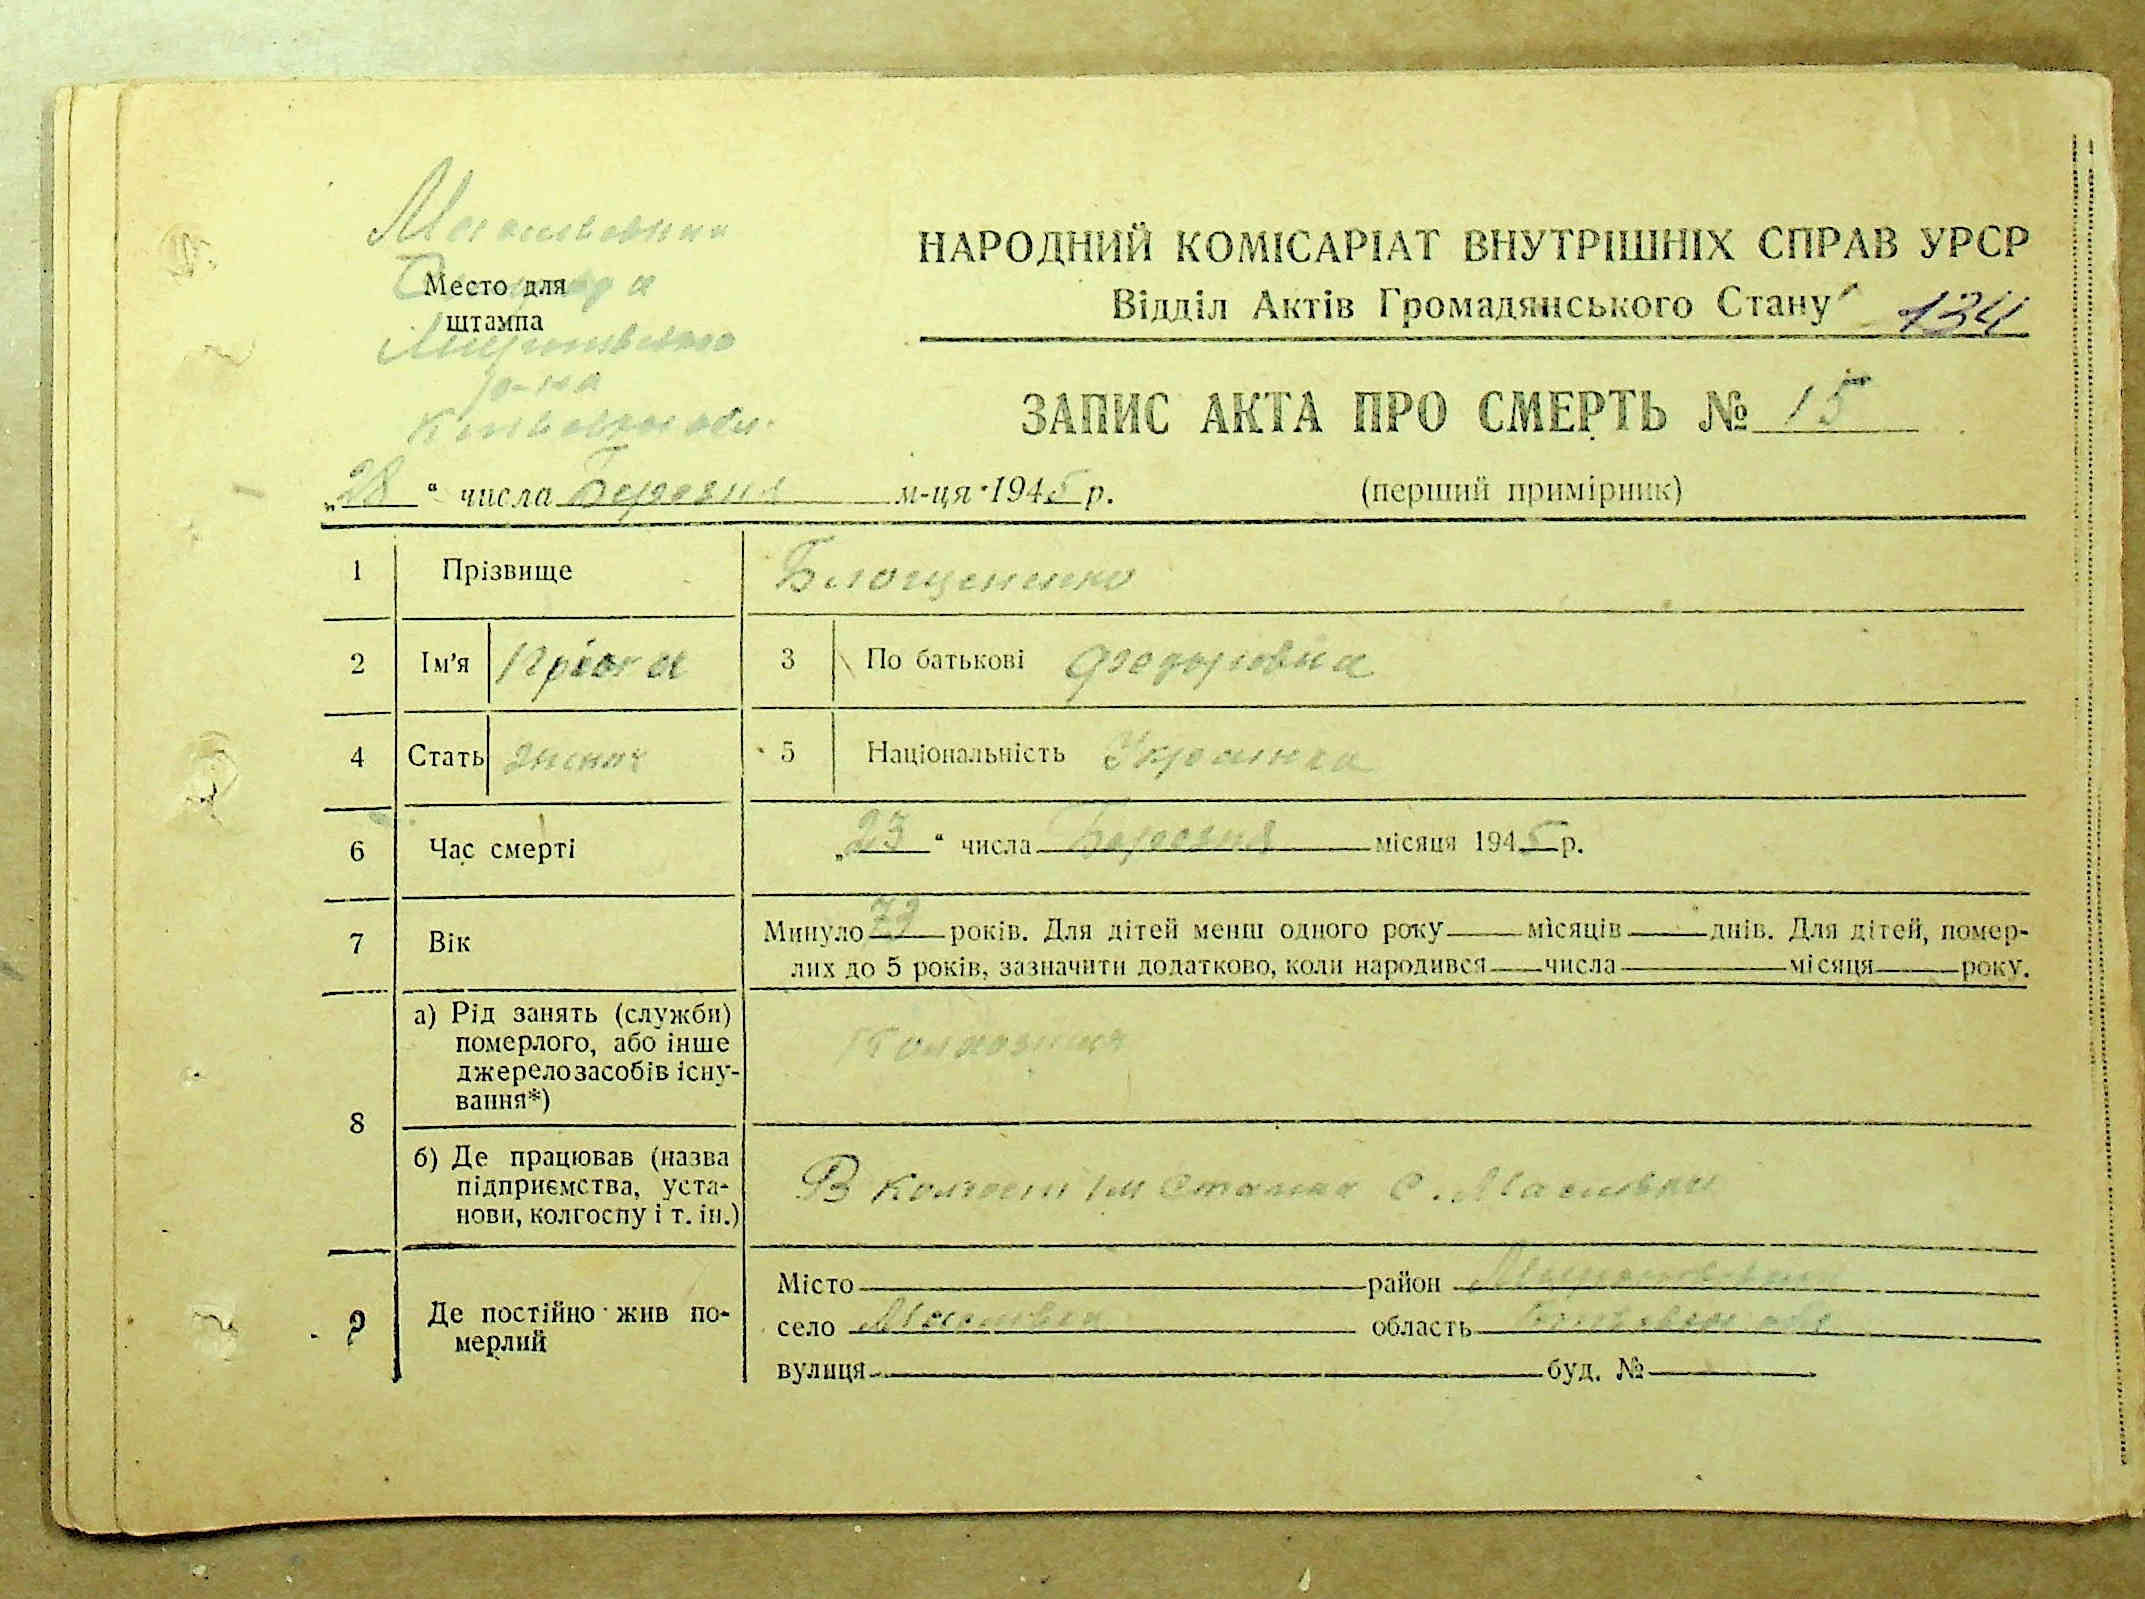 НАРОДНИЙ КОМІСАРІАТ ВНУТРІШНІХ СПРАВ УРСР
Відділ Актів Громадянського Стану 134
Место для
штампа
р-на
ЗАПИС АКТА ПРО СМЕРТЬ № 15
„28“ числа Березня м-ця 1945 р. (перший примірник)
1 Прізвище Білощененко
2 Ім'я 3 По батькові Федоровна
4 Стать жіноч 5 Національність Украинка
6 Час смерті „23“ числа Березня місяця 1945 р.
7 Вік Минуло 73 років. Для дітей менш одного року місяців днів. Для дітей, помер-
лих до 5 років, зазначити додатково, коли народився числа місяця року.
8 а) Рід занять (служби)
померлого, або інше
джерело засобів існу-
вання*) Колхозниця
б) Де працював (назва
підприємства, уста-
нови, колгоспу і т. ін.) В колгоспі ім Сталина с. Масловки
9 Де постійно жив по-
мерлий
Місто район Миронівський
село Масловка область Київська обл
вулиця буд. №